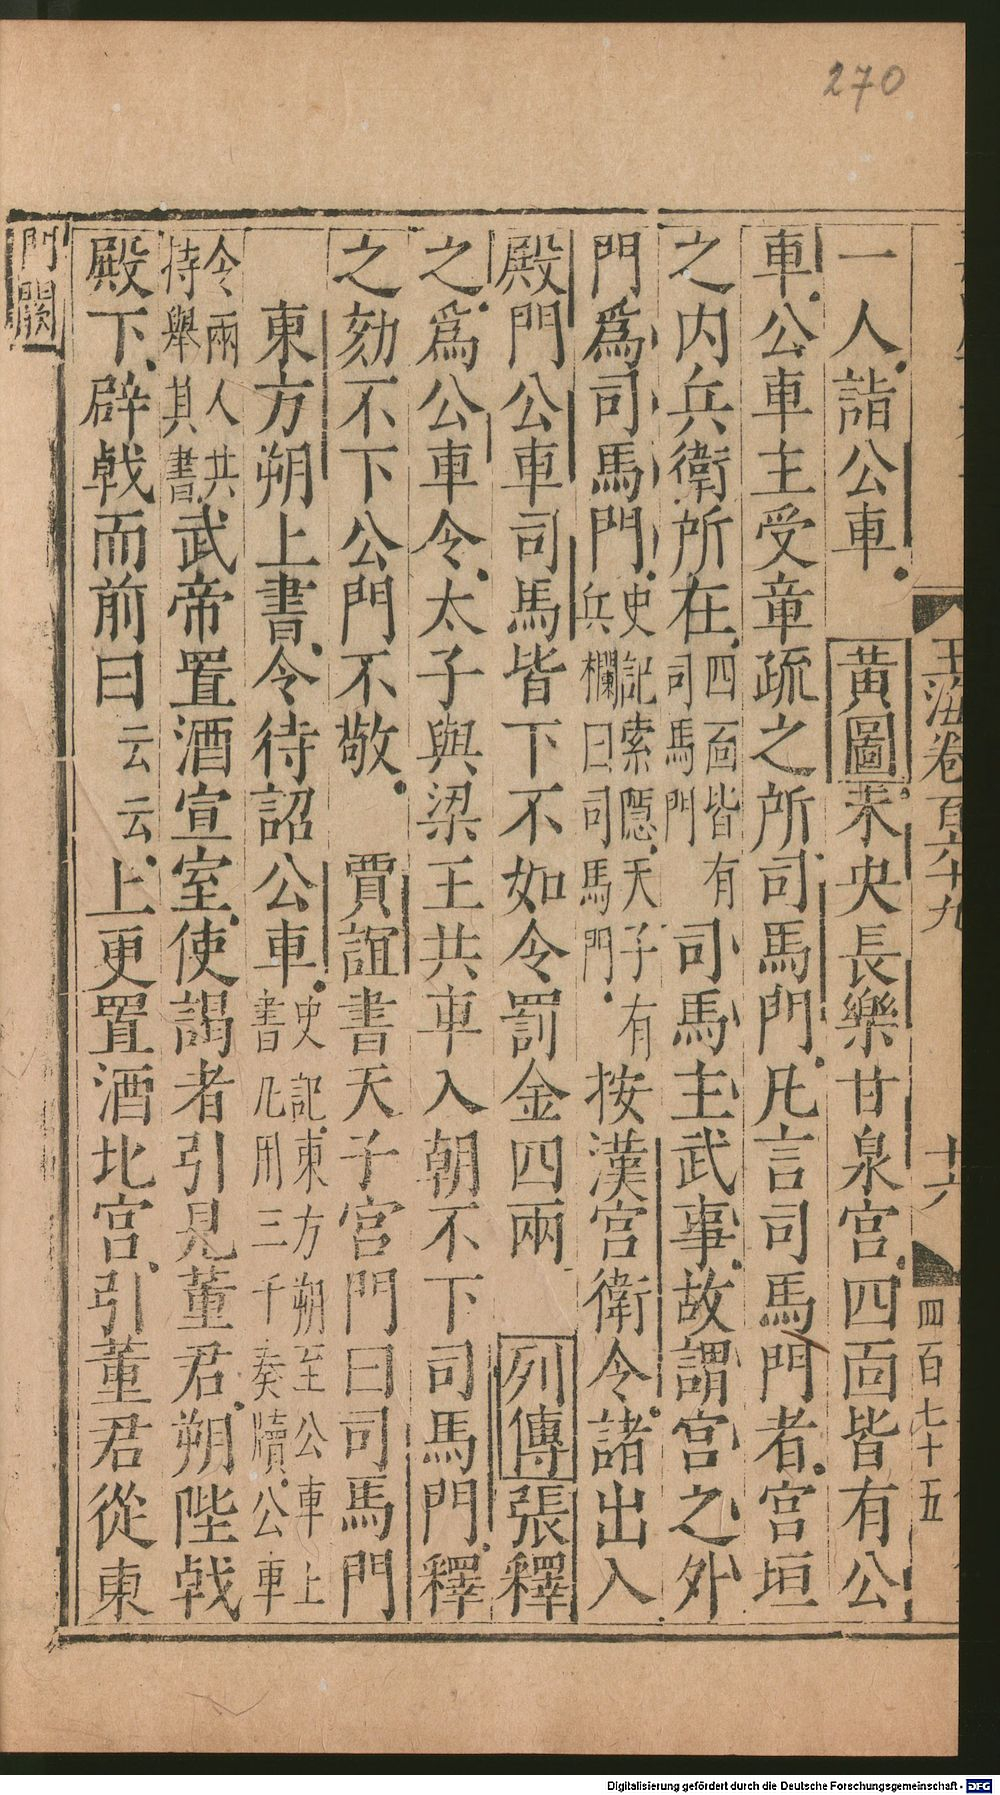 270
玉海卷百六十九　十六　四百七十五
一人詣公車黃圖未央長樂甘泉宮四面皆有公
車公車主受章疏之所司馬門凡言司馬門者宮垣
之内兵衛所在四面皆有司馬門司馬主武事故謂宮之外
門爲司馬門史記索隱天子有兵欄曰司馬門按漢宮衛令諸出入
殿門公車司馬皆下不如令罰金四兩列傳張釋
之爲公車令太子與梁王共車入朝不下司馬門釋
之劾不下公門不敬　賈誼書天子宮門曰司馬門
東方朔上書令待詔公車史記東方朔至公車上書凡用三千奏牘公車
令兩人共持舉其書武帝置酒宣室使謁者引見董君朔陛戟
殿下辟戟而前曰云云上更置酒北宮引董君從東
門闕
Digitalisierung gefördert durch die Deutsche Forschungsgemeinschaft - DFG